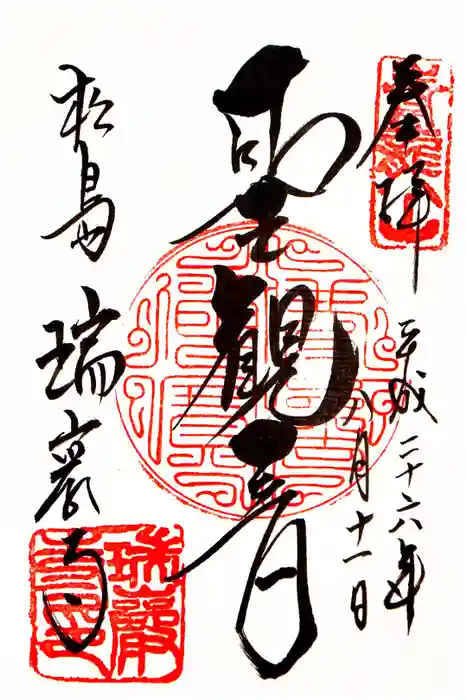 奉拝
平成二十六年
八月十一日
聖観音
松島
瑞巌寺